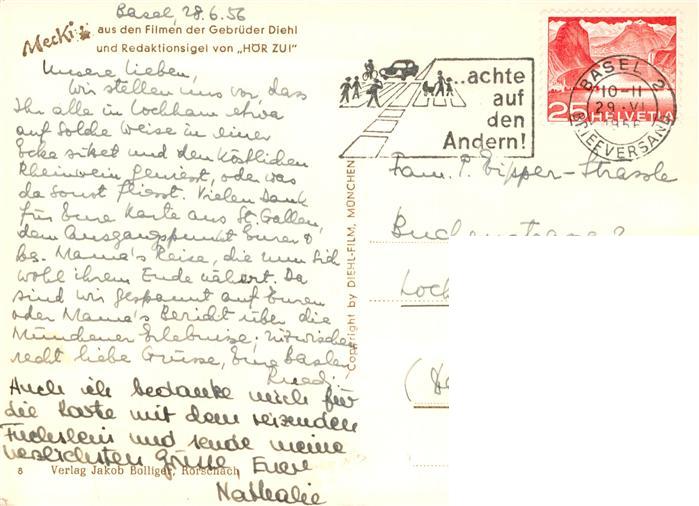 Basel, 28.6.56
Mecki
aus den Filmen der Gebrüder Diehl
und Redaktionsigel von „HÖR ZU!"
Unsere Lieben,
Wir stellen uns vor, dass
Ihr alle in Lochham etwa
auf solche Weise in einer
Ecke sitzet und den köstlichen
Rheinwein geniesst, oder was
da sonst fliesst. Vielen Dank
für Eure Karte aus St. Gallen,
dem Ausgangspunkt Eurer &
bes. Mama's Reise, die nun sich
wohl ihrem Ende nähert. Da
sind wir gespannt auf Euren
oder Mama's Bericht über die
Münchener Erlebnisse; inzwischen
recht liebe Grüsse, Eure Basler
Ruedi
Auch ich bedanke mich für
die Karte mit dem reizenden
Füchslein und sende meine
herzlichsten Grüsse Eure
Nathalie
8 Verlag Jakob Bolliger, Rorschach
Copyright by DIEHL-FILM, MÜNCHEN
...achte
auf
den
Andern!
BASEL 2
10-11
29.VI.
1956
BRIEFVERSAND
25 HELVETIA
Fam. P. Eipper-Strassle
Buchenstrasse
Loch